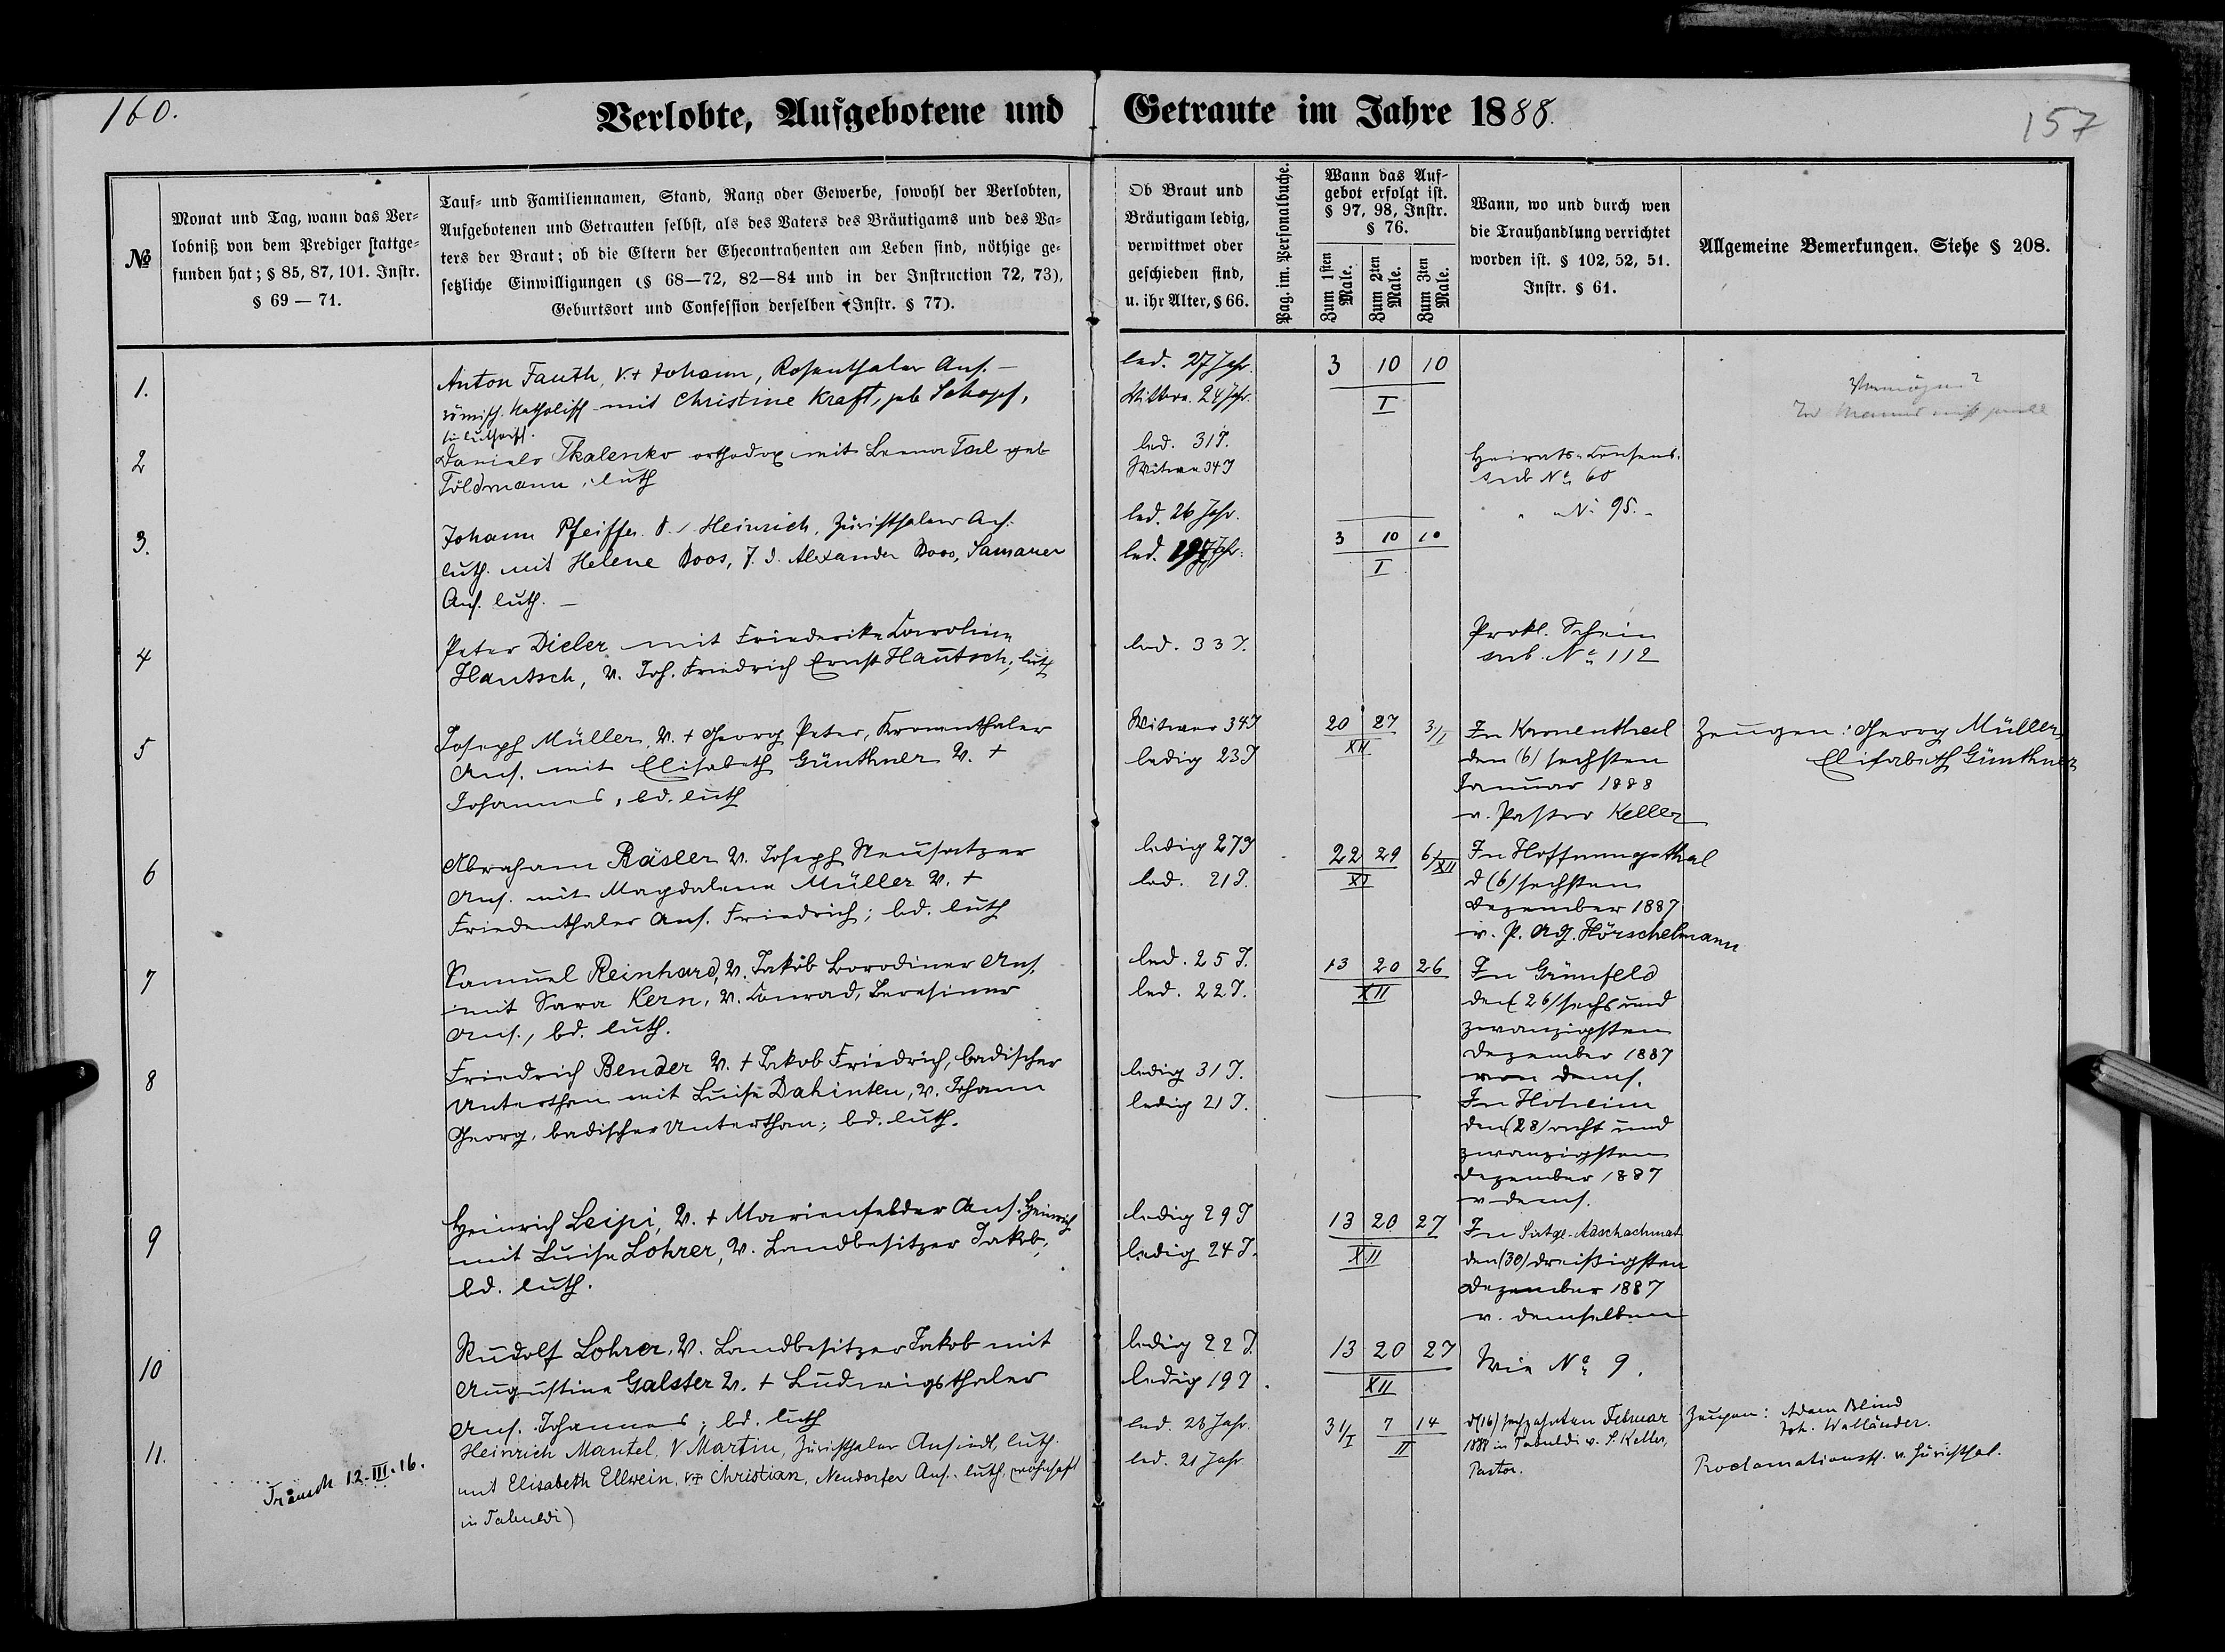 160.
Verlobte, Aufgebotene und Getraute im Jahre 1888.
157
№
Monat und Tag, wann das Ver-
lobniß von dem Prediger stattge-
funden hat; § 85, 87, 101. Instr.
§ 69 — 71.
Tauf- und Familiennamen, Stand, Rang oder Gewerbe, sowohl der Verlobten,
Aufgebotenen und Getrauten selbst, als des Vaters des Bräutigams und des Va-
ters der Braut; ob die Eltern der Ehecontrahenten am Leben sind, nöthige ge-
setzliche Einwilligungen (§ 68—72, 82—84 und in der Instruction 72, 73),
Geburtsort und Confession derselben (Instr. § 77).
Ob Braut und
Bräutigam ledig,
verwittwet oder
geschieden sind,
u. ihr Alter, § 66.
Pag. im. Personalbuche.
Wann das Auf-
gebot erfolgt ist.
§ 97, 98, Instr.
§ 76.
Zum 1sten Male.
Zum 2ten Male.
Zum 3ten Male.
Wann, wo und durch wen
die Trauhandlung verrichtet
worden ist. § 102, 52, 51.
Instr. § 61.
Allgemeine Bemerkungen. Siehe § 208.
1.
Anton Fauth, V. + Johann, Rosenthaler Ans. —
römisch-katholisch mit Christine Kraft, geb. Schopf,
sie lutherisch.
led. 27 Jahr.
Wittwe. 24 Jahr.
3 10 10
I
Vermögen?
2
Danielo Tkalenko orthodox mit Leena Tal geb
Földmann, luth
led. 31 J.
Witwe 34 J
Heirats-Consens.
sub № 60
3.
Johann Pfeiffer V. Heinrich, Zürichthaler Ans.
luth. mit Helene Boos, T. d. Alexander Boos, Samaner
Ans. luth. —
led. 26 Jahr.
led. 19 Jahr.
3 10 10
I
" " № 95. -
4
Peter Dieler mit Friederike Caroline
Hantsch, V. Joh. Friedrich Ernst Hautsch, luth
led. 33 J.
Prokl. Schein
sub. № 112
5
Joseph Müller, V. + Georg Peter, Kronenthaler
Ans. mit Elisabeth Günthner V. +
Johannes, bd. luth
Witwer 34 J
ledig 23 J
20 27 3/I
XII
In Kronenthal
den (6) sechsten
Januar 1888
v. Pastor Keller
Zeugen: Georg Müller,
Elisabeth Günthner
6
Abraham Bäsler V. Joseph Neusatzer
Ans. mit Magdalena Müller V. +
Friedenthaler Ans. Friedrich; bd. luth
ledig 27 J
led. 21 J.
22 29 6/XII
XI
In Hoffnungsthal
d (6) sechsten
Dezember 1887
v. P. Adj. Hörschelmann
7
Samuel Reinhard, V. Jakob Borodiner Ans.
mit Sara Kern, V. Conrad, Beresiner
Ans., bd. luth.
led. 25 J.
led. 22 J.
13 20 26
XII
In Grünfeld
den (26) sechs und
zwanzigsten
Dezember 1887
von dems.
8
Friedrich Bender V. + Jakob Friedrich, badischer
Unterthan mit Luise Dahinten, V. Johann
Georg, badischer Unterthan; bd. luth.
ledig 31 J.
ledig 21 J.
In Hoheim
den (28) acht und
zwanzigsten
Dezember 1887
v. dems.
9
Heinrich Leipi, V. + Marienfelder Ans. Heinrich
mit Luise Lohrer, V. Landbesitzer Jakob,
bd. luth.
ledig 29 J
ledig 24 J.
13 20 27
XII
In Sirtge-Adschachmat
den (30) dreißigsten
Dezember 1887
v. demselben
10
Rudolf Lohrer, V. Landbesitzer Jakob mit
Augustine Galster V. + Ludwigsthaler
Ans. Johannes; bd. luth
ledig 22 J.
ledig 19 J.
13 20 27
XII
Wie № 9.
11.
Träusch 12-III-16.
Heinrich Mantel, V Martin, Zürichthaler Ansiedl, luth.
mit Elisabeth Ellwein, V+ Christian, Neudorfer Ans. luth. (wohnhaft
in Tabuldi)
led. 28 Jahr.
led. 21 Jahr
31/I 7 14
II
d (16) sechzehnten Februar
1888 in Tabuldi v. S. Keller,
Pastor.
Zeugen: Adam Blind
Joh. Walländer.
Proclamationssch. v. Zürichthal.